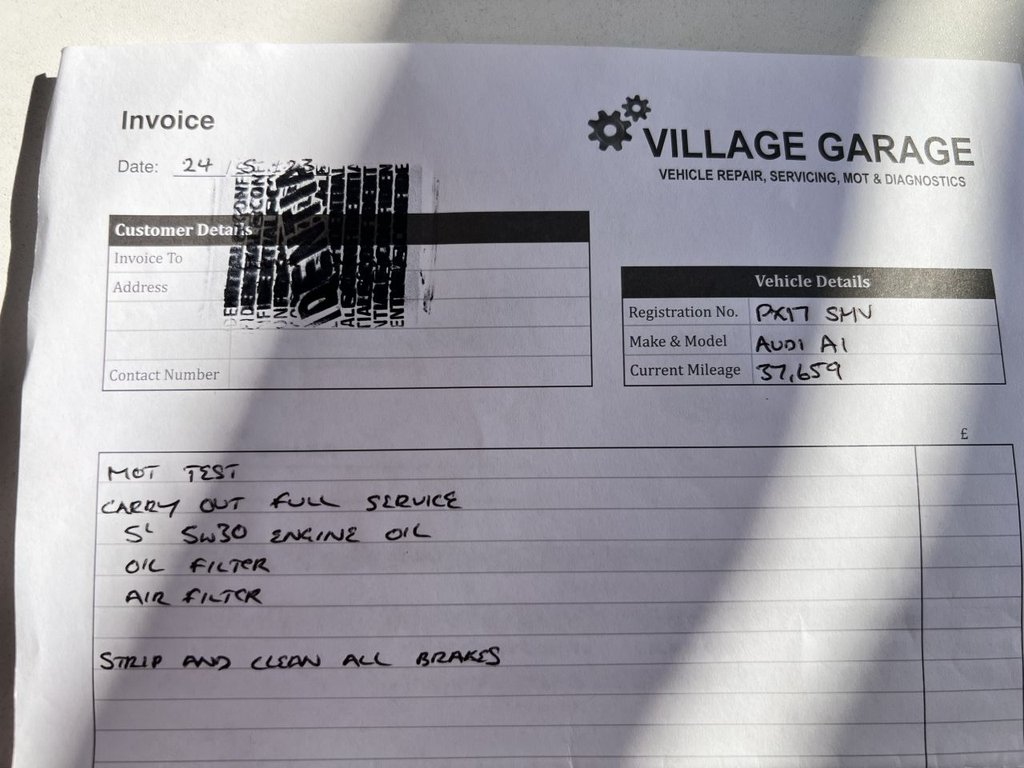 Invoice
VILLAGE GARAGE
VEHICLE REPAIR, SERVICING, MOT & DIAGNOSTICS
Date: 24 / 5 23
Customer Details
Invoice To
Address
Contact Number
Vehicle Details
Registration No. PX17 SMV
Make & Model AUDI A1
Current Mileage 37,659
£
MOT TEST
CARRY OUT FULL SERVICE
5L 5W30 ENGINE OIL
OIL FILTER
AIR FILTER
STRIP AND CLEAN ALL BRAKES